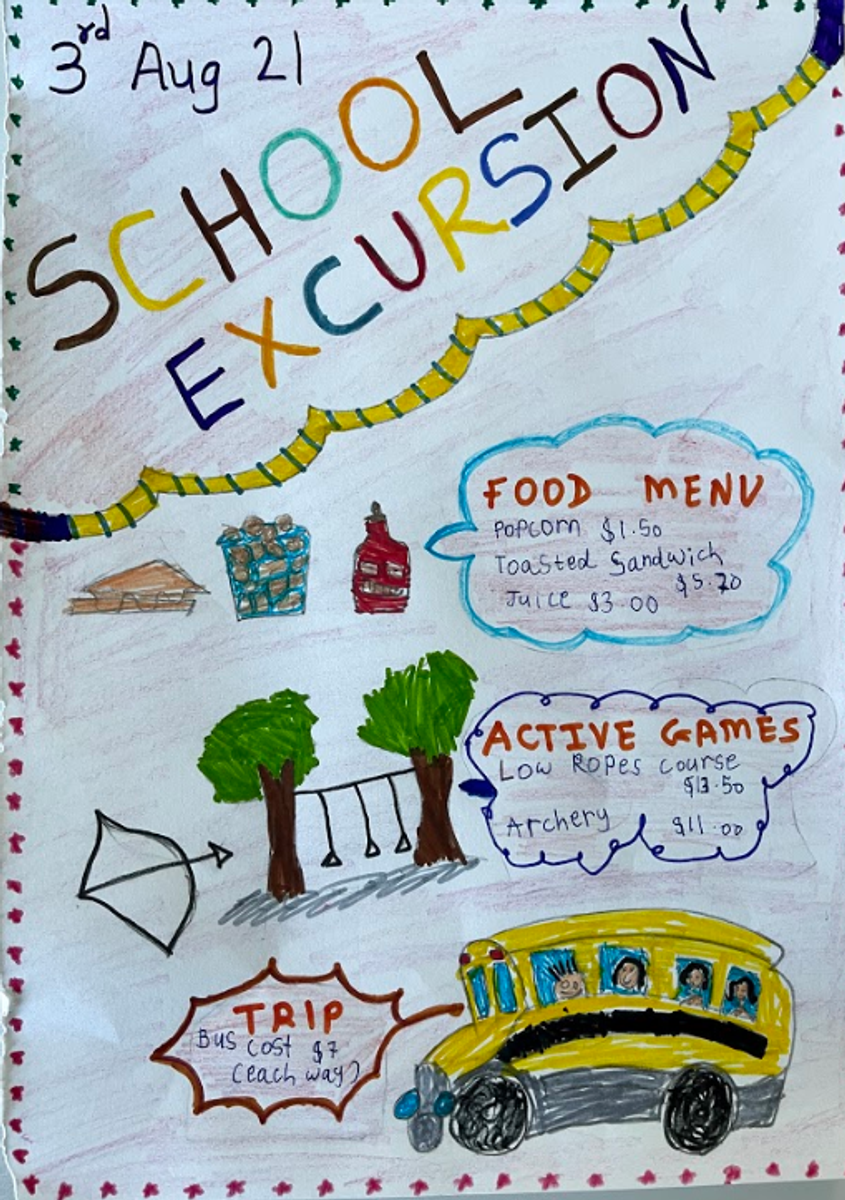 3rd Aug 21
SCHOOL
EXCURSION
FOOD MENU
Popcorn $1.50
Toasted Sandwich
$5.20
Juice $3.00
ACTIVE GAMES
Low Ropes course
$13.50
Archery $11.00
TRIP
Bus cost $7
(each way)